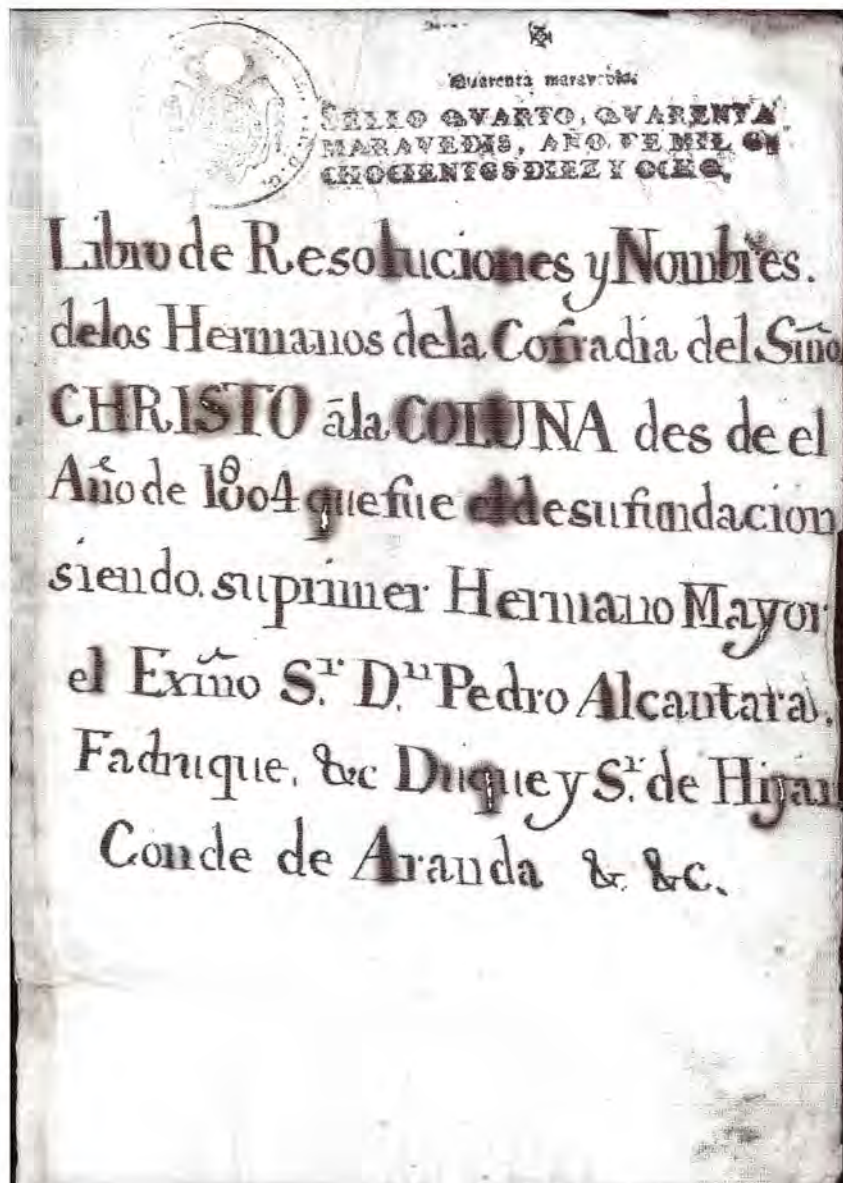 Quarenta maravedis.
SELLO QVARTO, QVARENTA
MARAVEDIS, AÑO DE MIL O-
CHOCIENTOS DIEZ Y OCHO.
Libro de Resoluciones y Nombres.
delos Hermanos dela Cofradia del Sm̃o
CHRISTO ãla COLUNA des de el
Año de 1804 que fue el de su fundacion
siendo. su primer Hermano Mayor
el Exm̃o S.r D.n Pedro Alcantara.
Fadrique, &c Duque y S.r de Hijar
Conde de Aranda & &c.